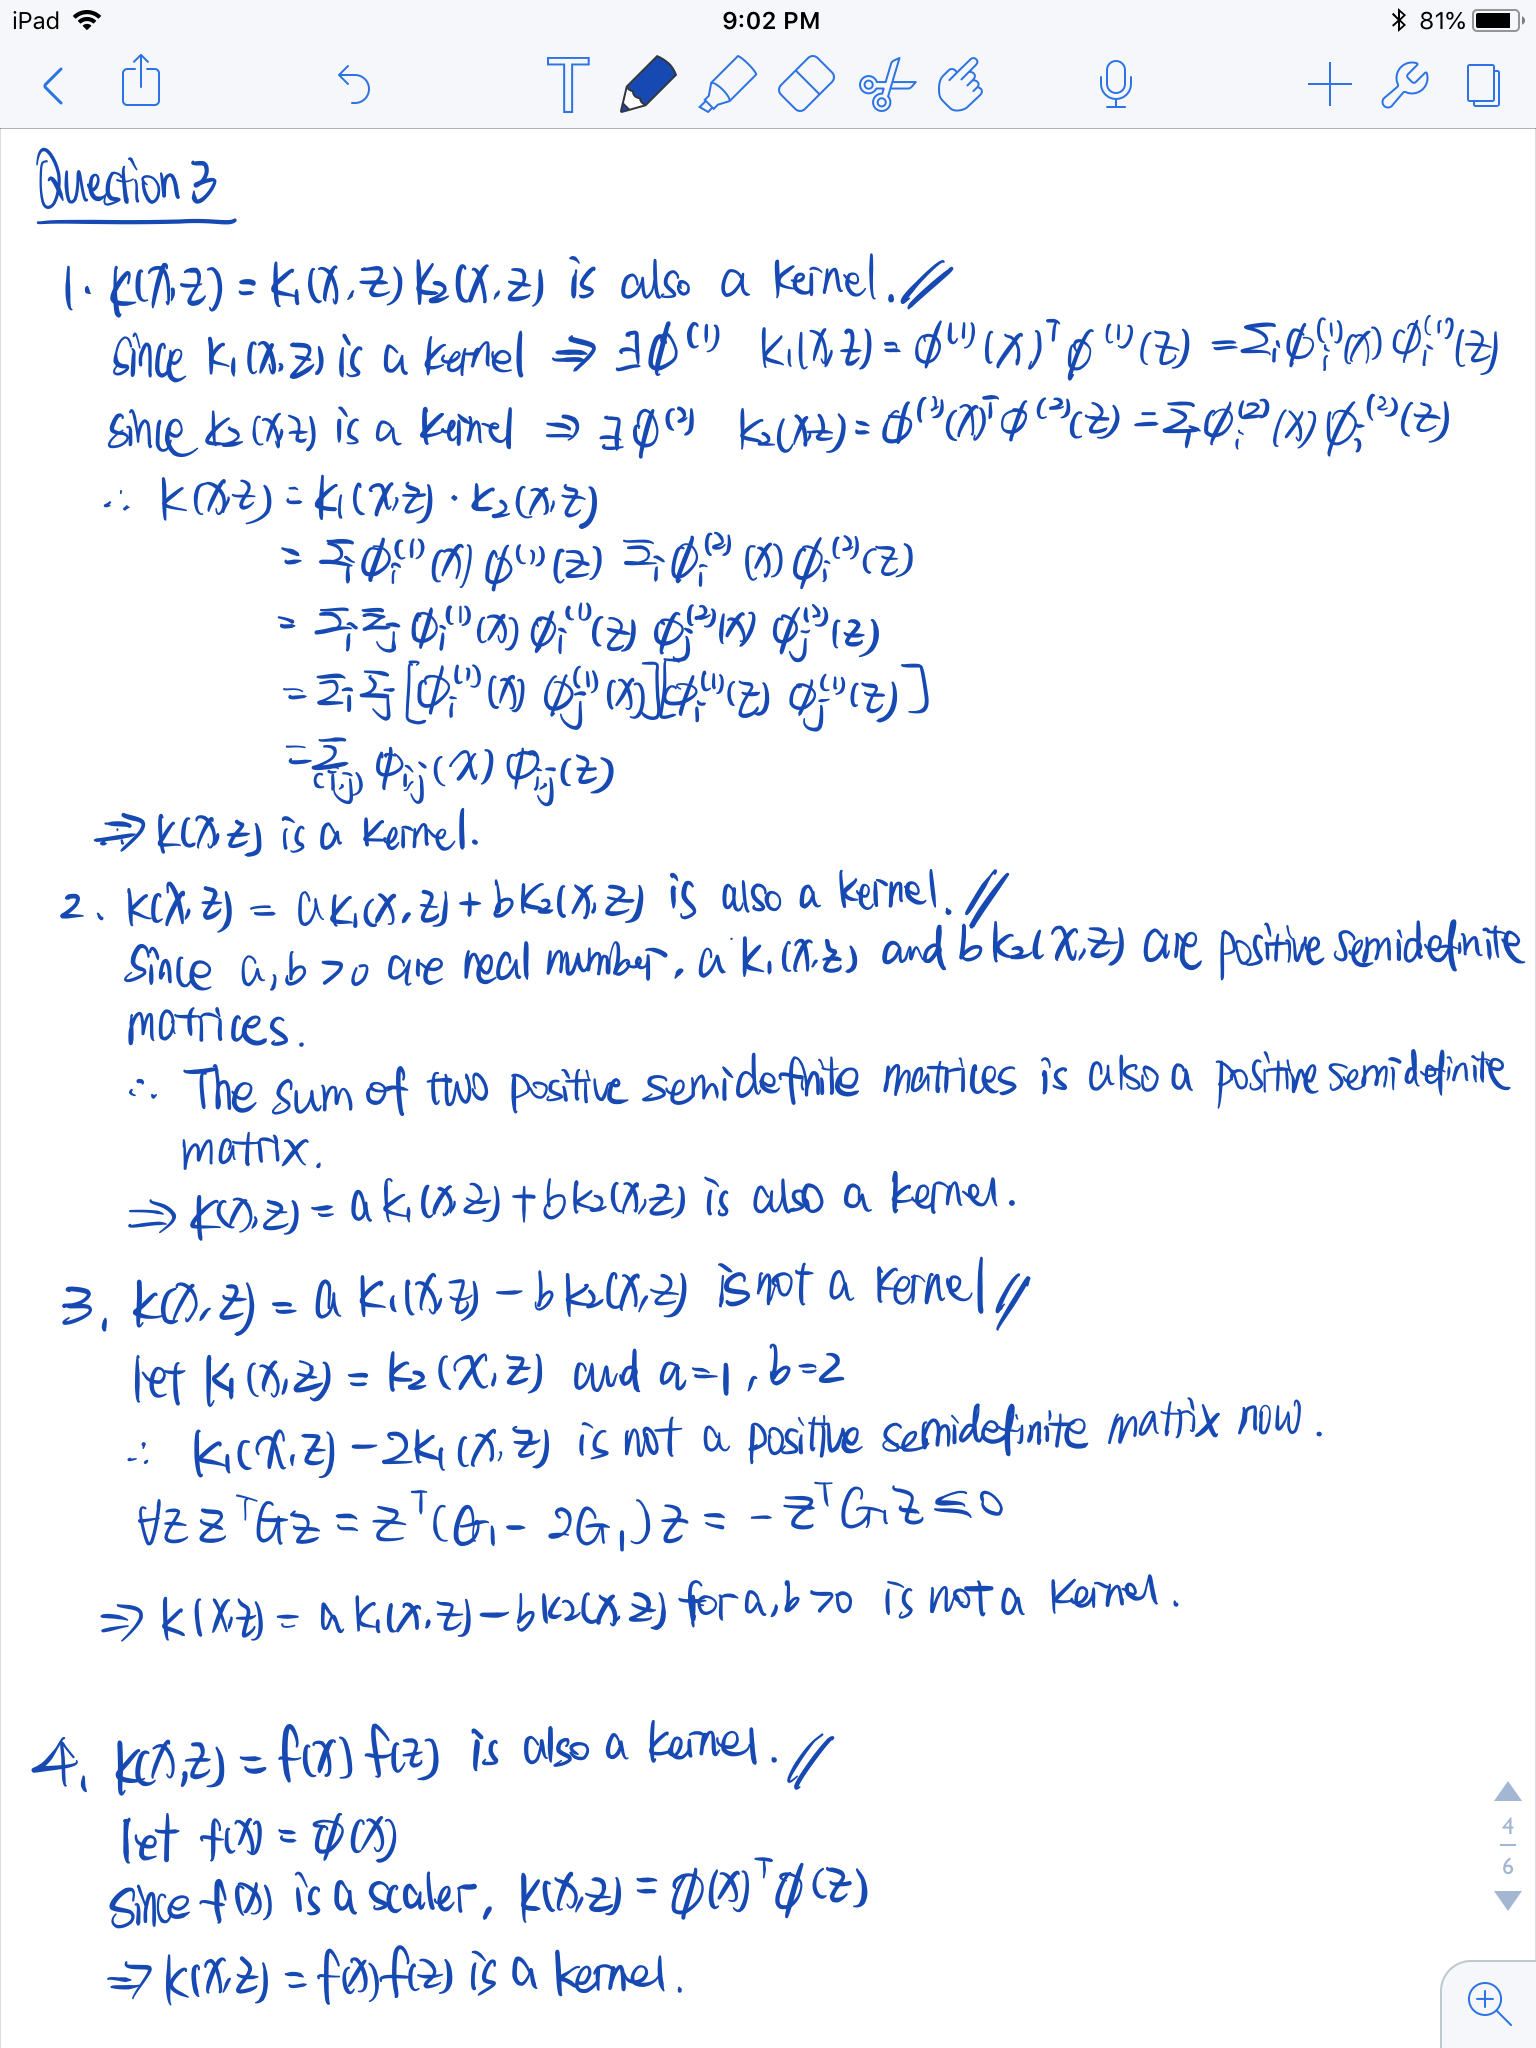 iPad 9:02 PM 81%
T
Question 3
1. k(x,z) = k₁(x,z) k₂(x,z) is also a kernel. //
since k₁(x,z) is a kernel ⇒ ∃ϕ⁽¹⁾ k₁(x,z) = ϕ⁽¹⁾(x)ᵀ ϕ⁽¹⁾(z) = Σᵢ ϕᵢ⁽¹⁾(x) ϕᵢ⁽¹⁾(z)
since k₂(x,z) is a kernel ⇒ ∃ϕ⁽²⁾ k₂(x,z) = ϕ⁽²⁾(x)ᵀ ϕ⁽²⁾(z) = Σᵢ ϕᵢ⁽²⁾(x) ϕᵢ⁽²⁾(z)
∴ k(x,z) = k₁(x,z) · k₂(x,z)
= Σᵢ ϕᵢ⁽¹⁾(x) ϕ⁽¹⁾(z) Σᵢ ϕᵢ⁽²⁾(x) ϕᵢ⁽²⁾(z)
= Σᵢ Σⱼ ϕᵢ⁽¹⁾(x) ϕᵢ⁽¹⁾(z) ϕⱼ⁽²⁾(x) ϕⱼ⁽²⁾(z)
= Σᵢ Σⱼ [ϕᵢ⁽¹⁾(x) ϕⱼ⁽¹⁾(x)][ϕᵢ⁽¹⁾(z) ϕⱼ⁽¹⁾(z)]
= Σ₍ᵢ,ⱼ₎ ϕᵢⱼ(x) ϕᵢⱼ(z)
⇒ k(x,z) is a kernel.
2. k(x,z) = ak₁(x,z) + bk₂(x,z) is also a kernel. //
Since a,b >0 are real number, a k₁(x,z) and b k₂(x,z) are positive semidefinite
matrices.
∴ The sum of two positive semidefnite matrices is also a positive semidefinite
matrix.
⇒ k(x,z) = a k₁(x,z) + bk₂(x,z) is also a kernel.
3. k(x,z) = a k₁(x,z) - bk₂(x,z) is not a kernel //
let k₁(x,z) = k₂(x,z) and a=1, b=2
∴ k₁(x,z) - 2k₁(x,z) is not a positive semidefinite matrix now.
∀z zᵀGz = zᵀ(G₁ - 2G₁)z = - zᵀG₁z ≤ 0
⇒ k(x,z) = a k₁(x,z) - bk₂(x,z) for a,b >0 is not a kernel.
4. k(x,z) = f(x) f(z) is also a kernel. //
let f(x) = ϕ(x)
Since f(x) is a scaler, k(x,z) = ϕ(x)ᵀϕ(z)
⇒ k(x,z) = f(x)f(z) is a kernel.
4
6